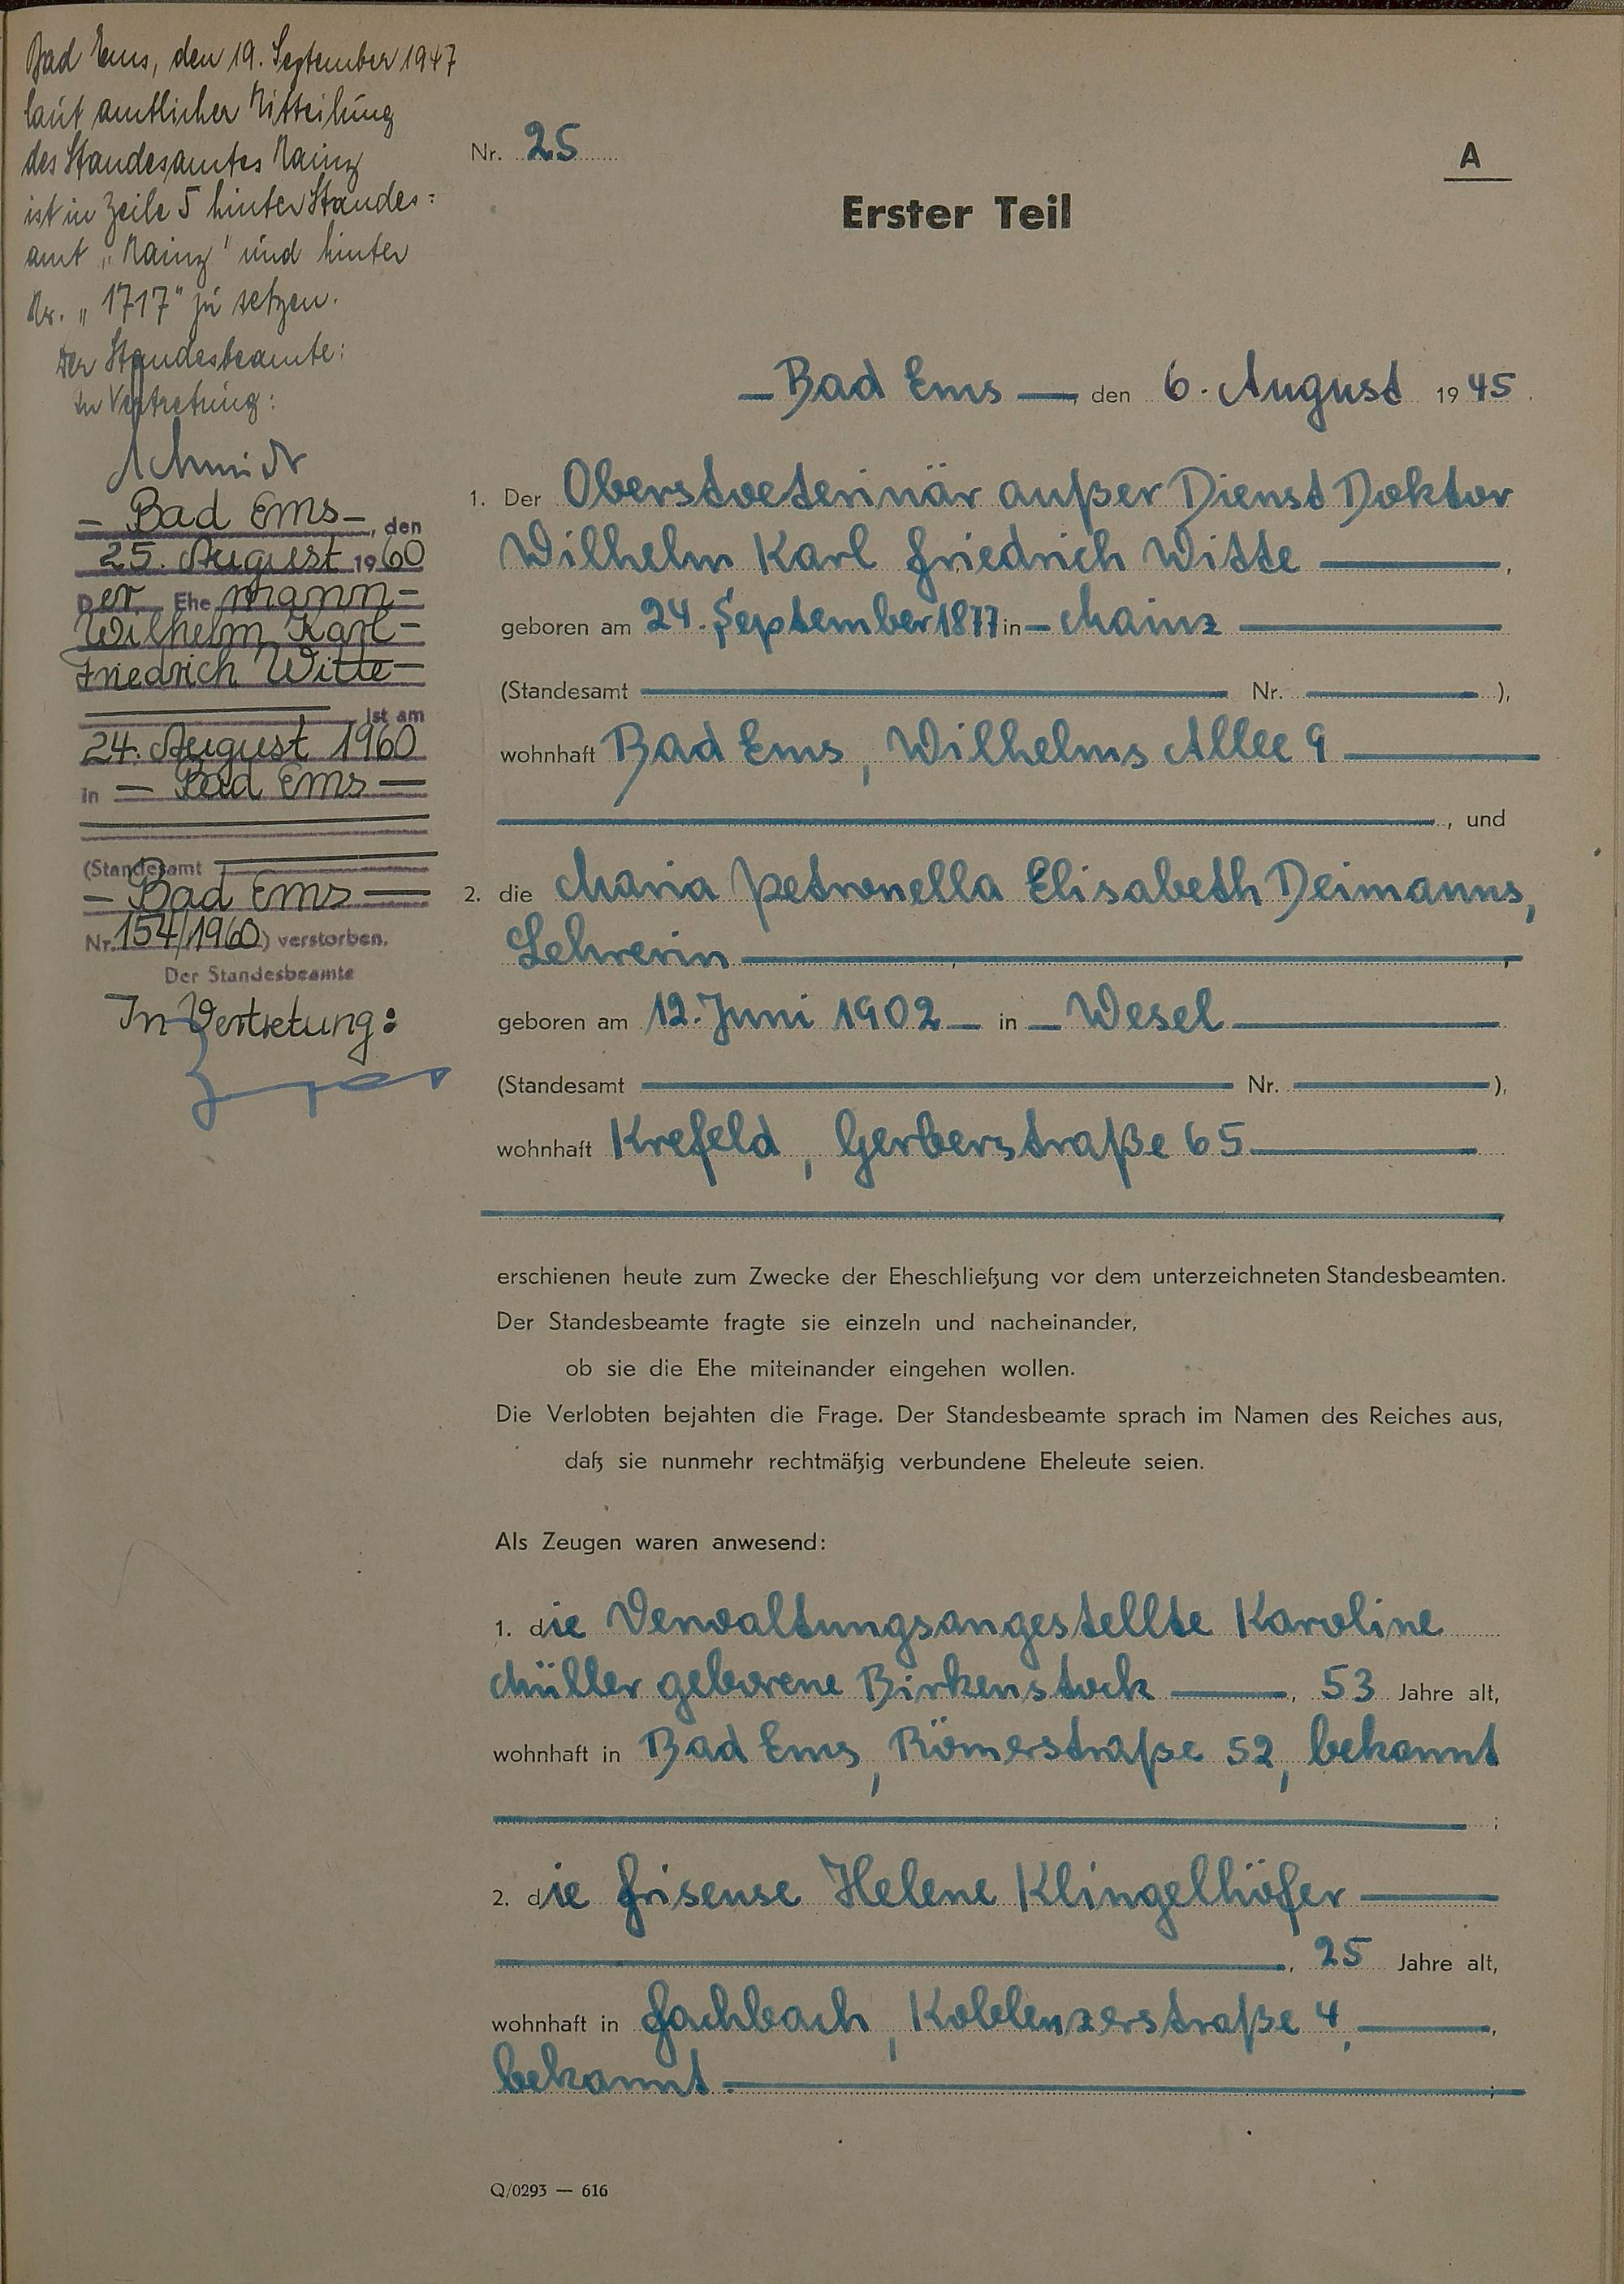 Bad Ems, den 19. September 1947
laut amtlicher Mitteilung
des Standesamtes Mainz
ist in Zeile 5 hinter Standes=
amt „Mainz" und hinter
Nr. „1717" zu setzen.
Der Standesbeamte:
In Vertretung:
Schmidt
— Bad Ems —, den
25. August 1960
Der Ehemann —
Wilhelm Karl —
Friedrich Witte —
ist am
24. August 1960
in — Bad Ems —
(Standesamt
— Bad Ems —
Nr. 154/1960) verstorben.
Der Standesbeamte
In Vertretung:
Nr. 25
A
Erster Teil
— Bad Ems —, den 6. August 1945.
1. Der Oberstveterinär außer Dienst Doktor
Wilhelm Karl Friedrich Witte —,
geboren am 24. September 1877 in — Mainz —
(Standesamt — Nr. —),
wohnhaft Bad Ems, Wilhelms Allee 9 —
—, und
2. die Maria Petronella Elisabeth Deimanns,
Lehrerin —,
geboren am 12. Juni 1902 — in — Wesel —
(Standesamt — Nr. —),
wohnhaft Krefeld, Gerberstraße 65 —
erschienen heute zum Zwecke der Eheschließung vor dem unterzeichneten Standesbeamten.
Der Standesbeamte fragte sie einzeln und nacheinander,
ob sie die Ehe miteinander eingehen wollen.
Die Verlobten bejahten die Frage. Der Standesbeamte sprach im Namen des Reiches aus,
daß sie nunmehr rechtmäßig verbundene Eheleute seien.
Als Zeugen waren anwesend:
1. die Verwaltungsangestellte Karoline
Müller geborene Birkenstock —, 53 Jahre alt,
wohnhaft in Bad Ems, Römerstraße 52, bekannt
—;
2. die Friseuse Helene Klingelhöfer —
—, 25 Jahre alt,
wohnhaft in Fachbach, Koblenzerstraße 4, —,
bekannt. —;
Q/0293 — 616